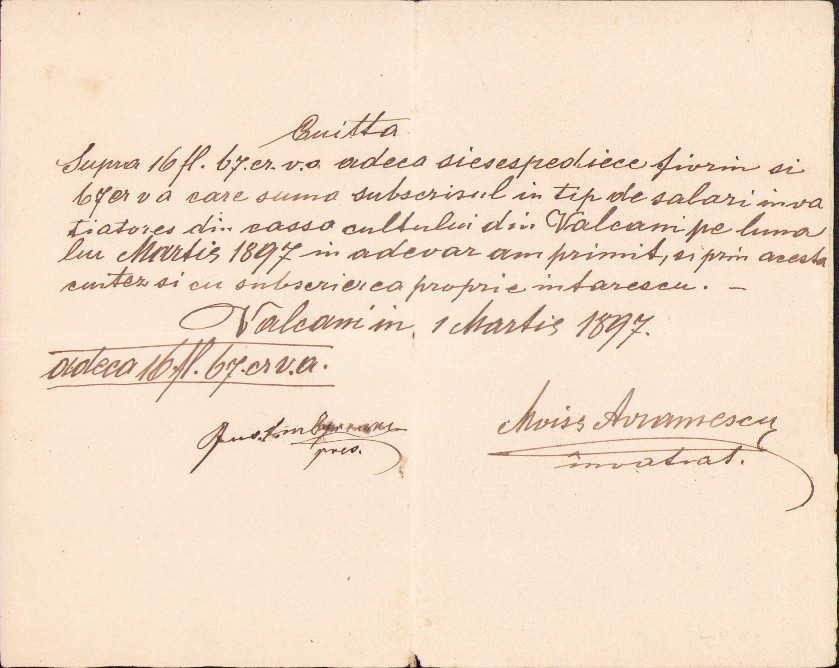 Cuitta
Supra 16 fl. 67. cr. v. a adeca siesespediece fiorin si
67 cr v a care suma subscrisul in tip de salari inva
tiatores din cassa cultului din Valcani pe luna
lui Martis 1897 in adevar am primit, si prin acesta
cuitez si cu subscrierea proprie intarescu. —
Valcani in 1 Martis 1897.
adeca 16 fl. 67. cr v. a.
Moiss Avramescu
pres.
invatiat.